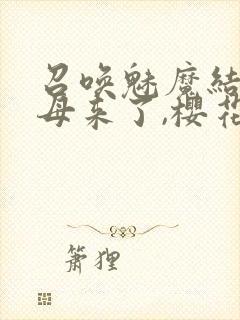 召唤魅魔结
母来了,樱花
箫狸